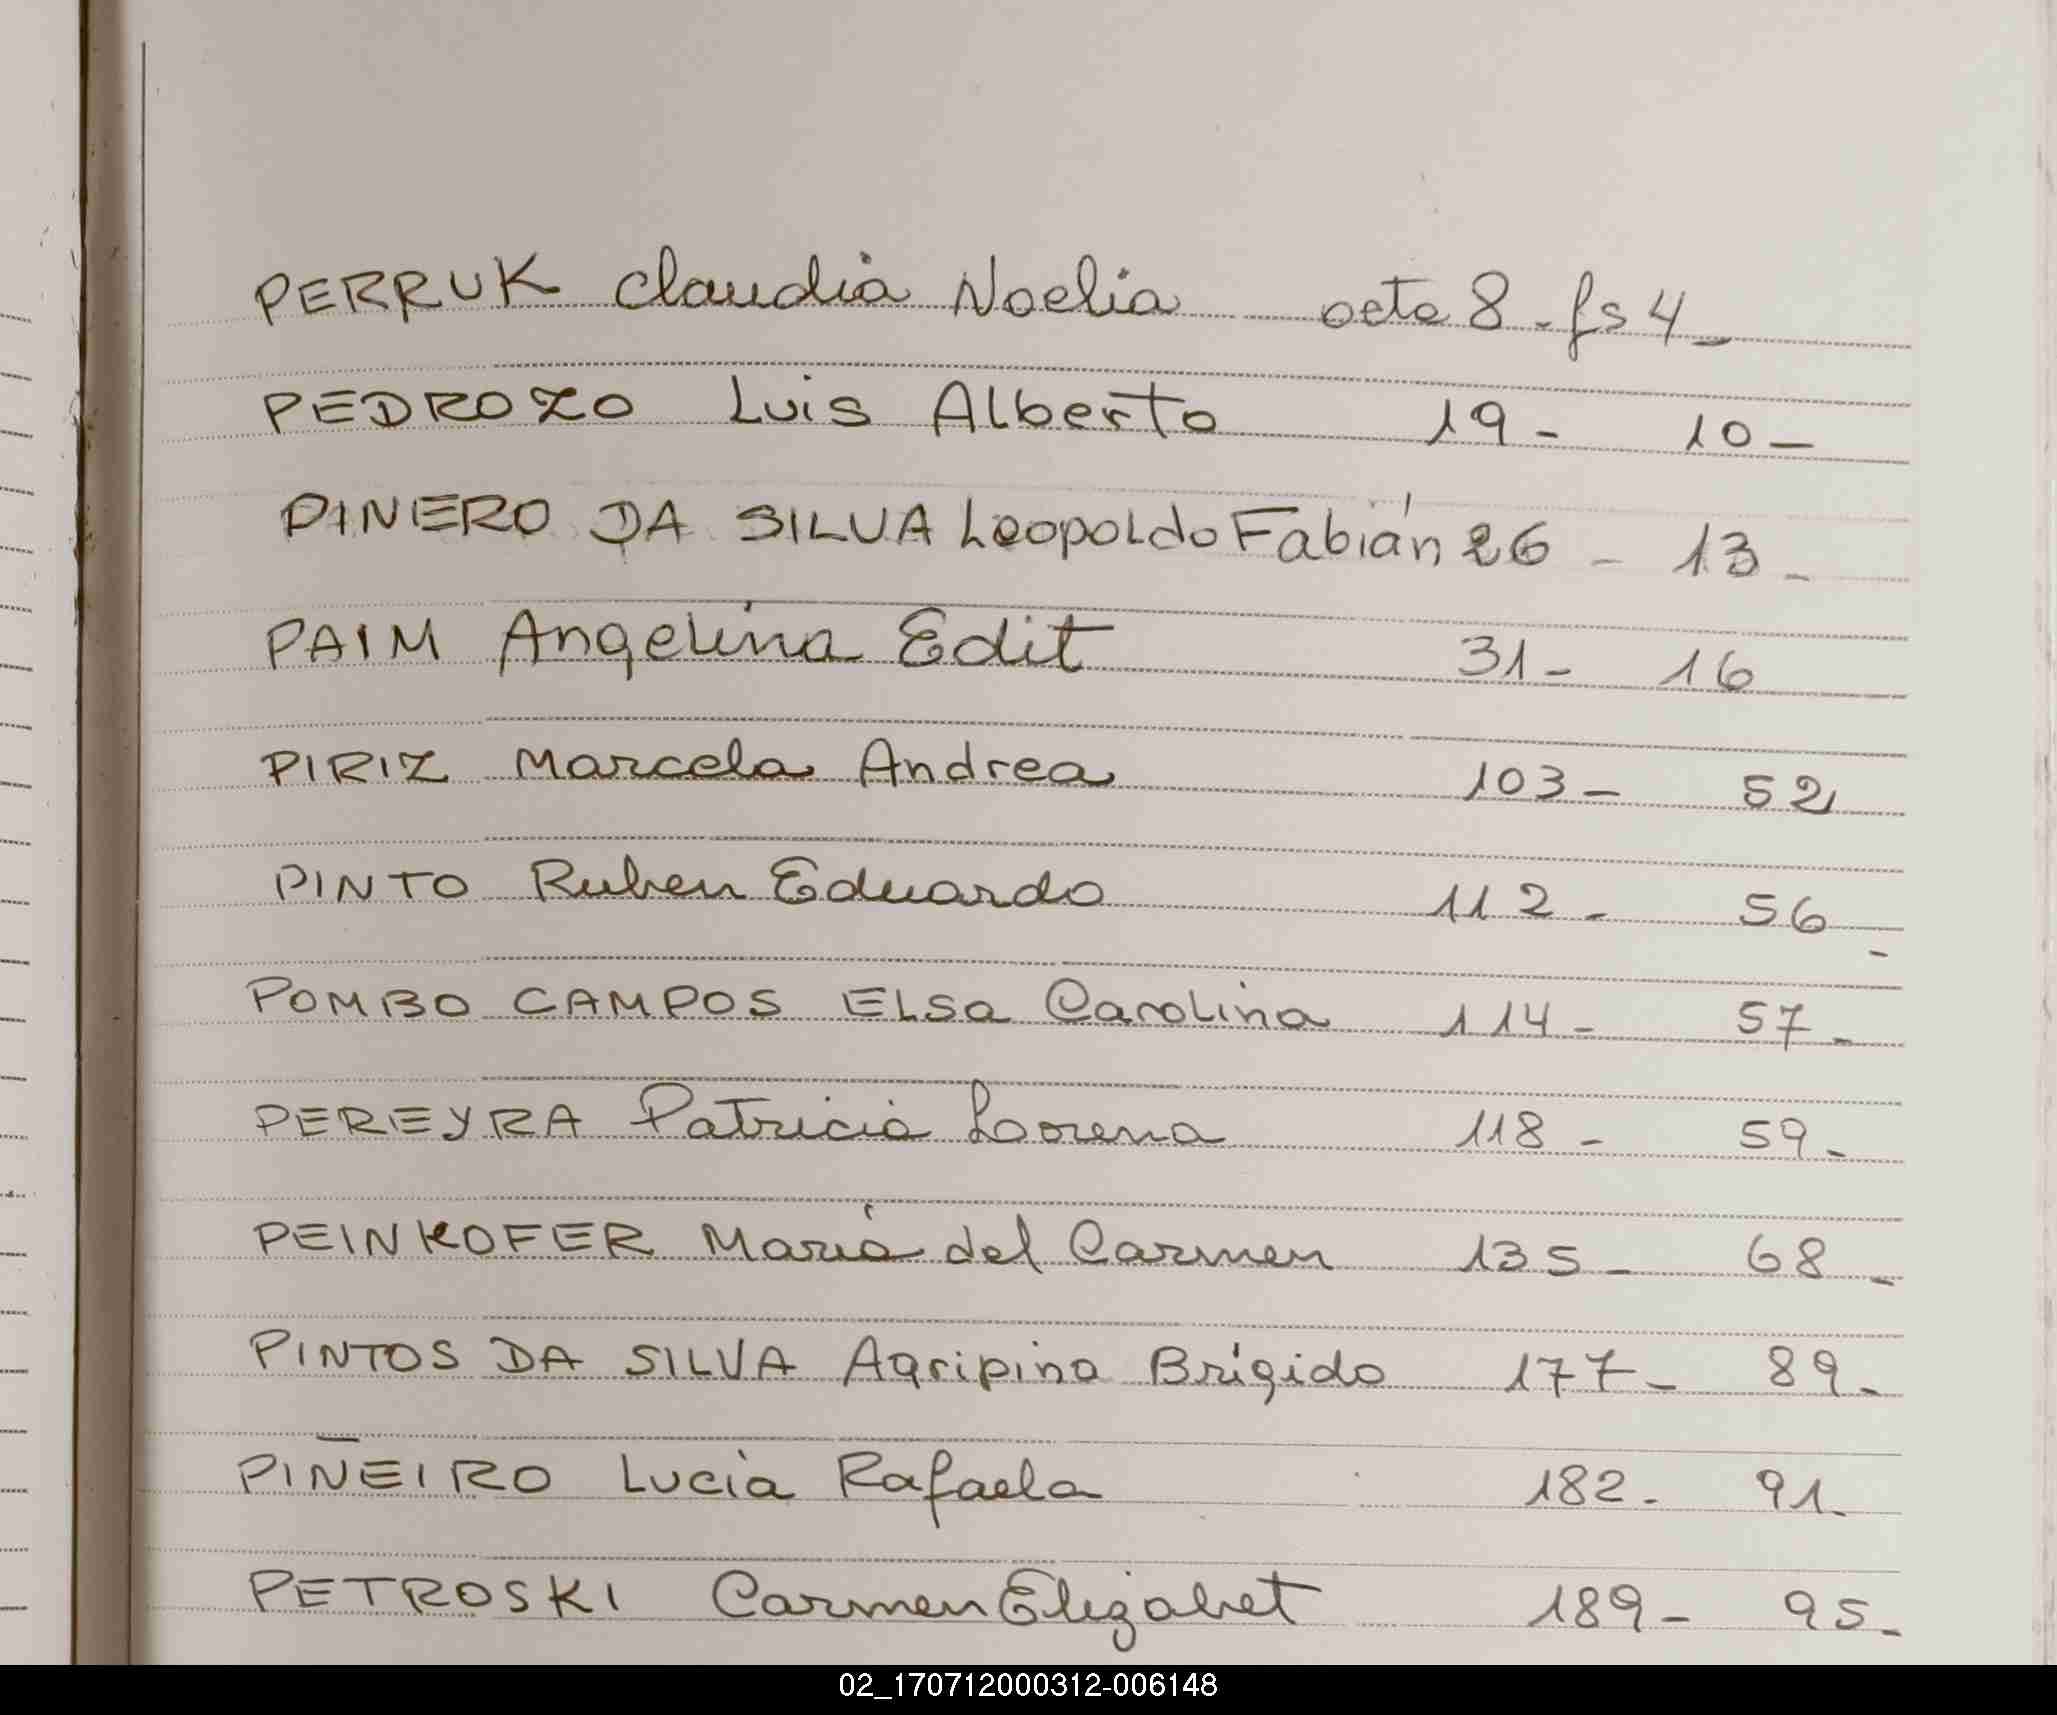 PERRUK Claudia Noelia acta 8 - fs 4 -
PEDROZO Luis Alberto 19 - 10 -
PINERO DA SILVA Leopoldo Fabián 26 - 13 -
PAIM Angelina Edit 31 - 16
PIRIZ Marcela Andrea 103 - 52
PINTO Ruben Eduardo 112 - 56 -
POMBO CAMPOS ELSA Carolina 114 - 57 -
PEREYRA Patricia Lorena 118 - 59 -
PEINKOFER María del Carmen 135 - 68 -
PINTOS DA SILVA Agripino Brígido 177 - 89 -
PIÑEIRO Lucía Rafaela 182 - 91 -
PETROSKI Carmen Elizabet 189 - 95 -
02_170712000312-006148